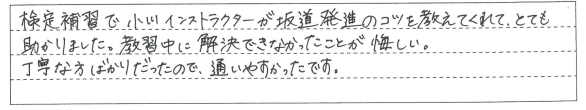 検定補習で小川インストラクターが坂道発進のコツを教えてくれて、とても
助かりました。教習中に解決できなかったことが悔しい。
丁寧な方ばかりだったので、通いやすかったです。